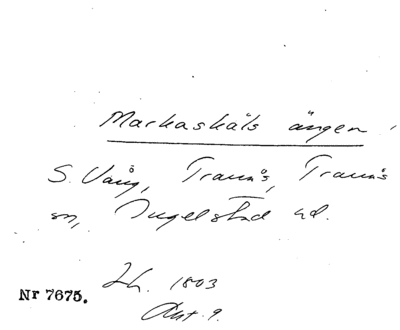 Markaskäls ängen
S. Vång, Tranås, Tranås
sn, Ingelstad hd.
Lh. 1803
Akt. 9.
Nr 7675.